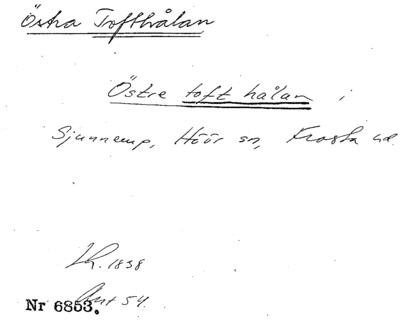 Östra Tofthålan
Östre toft hålan i
Sjunnerup, Höör sn, Frosta hd.
Lh. 1838
Akt 54.
Nr 6853.